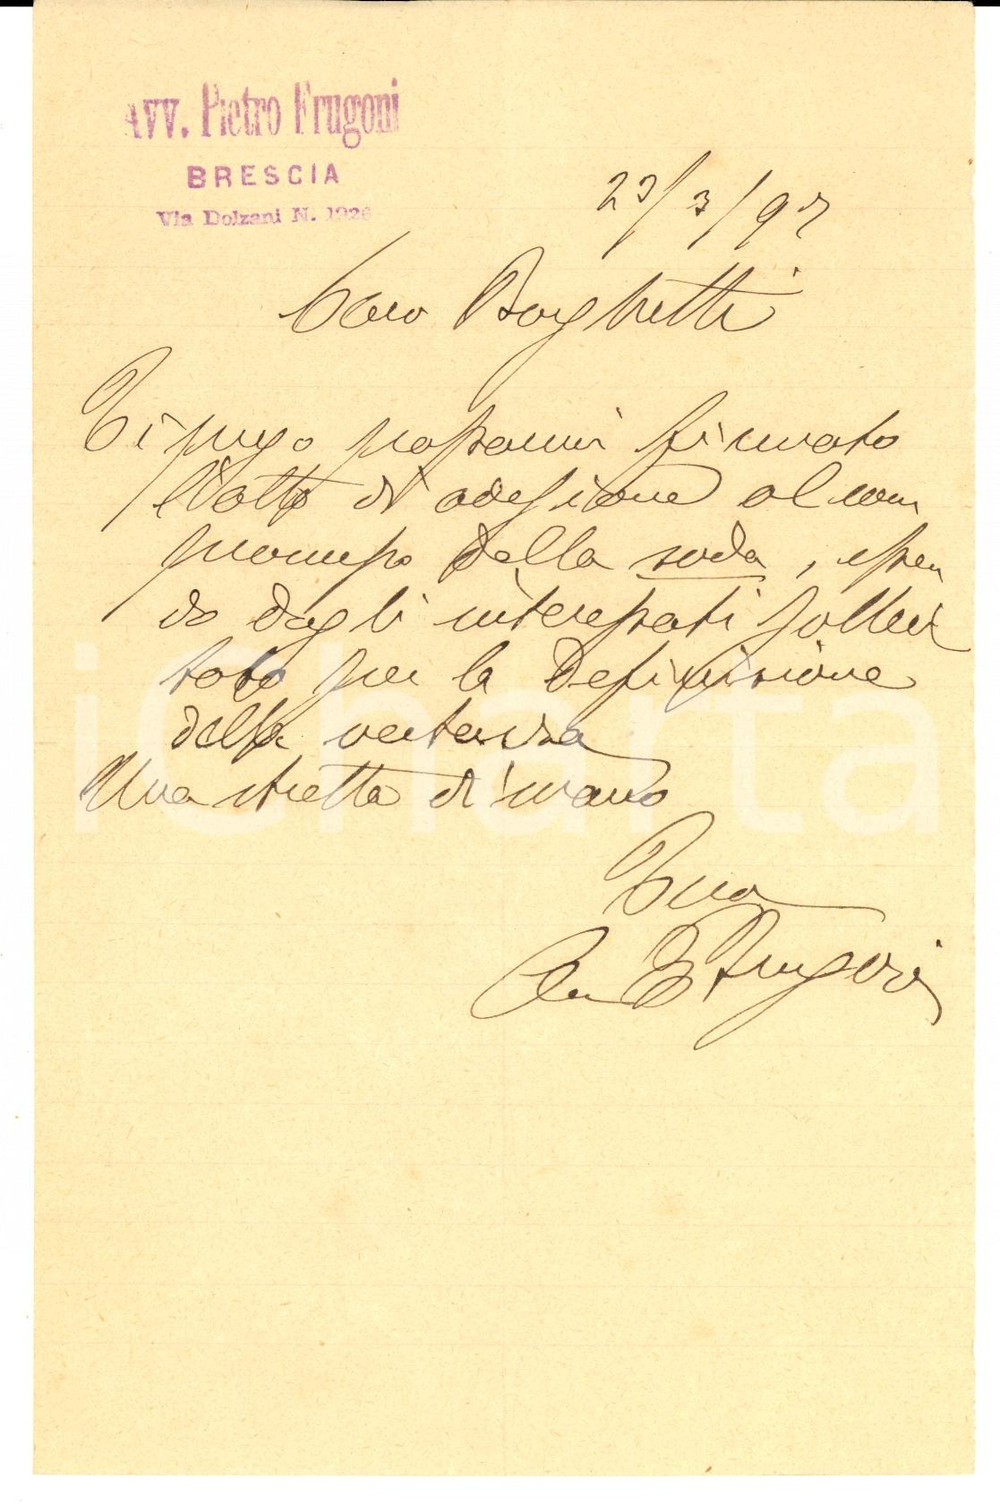 Avv. Pietro Frugoni
BRESCIA
Via Dolzani N. 1926
23/3/97
Caro Borghetti
Ti prego passarmi firmato
l'atto di adesione al com
promesso della soda, essen
do dagli interessati solleci
tato per la definizione
della vertenza
Una stretta di mano
Tuo
Frugoni
iCharta